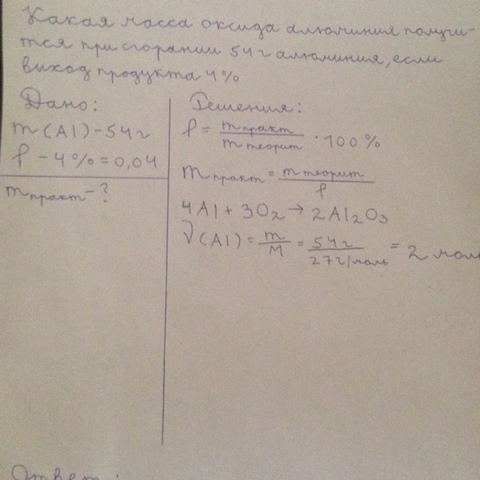 Какая масса оксида алюминия получи-
тся при сгорании 54 г алюминия, если
выход продукта 4%
Дано:
m(Al) - 54 г
f - 4% = 0,04
m практ - ?
Решения:
f = m практ / m теорит · 100%
m практ = m теорит / f
4Al + 3O₂ → 2Al₂O₃
ν(Al) = m/M = 54 г / 27 г/моль = 2 моль
Ответ: